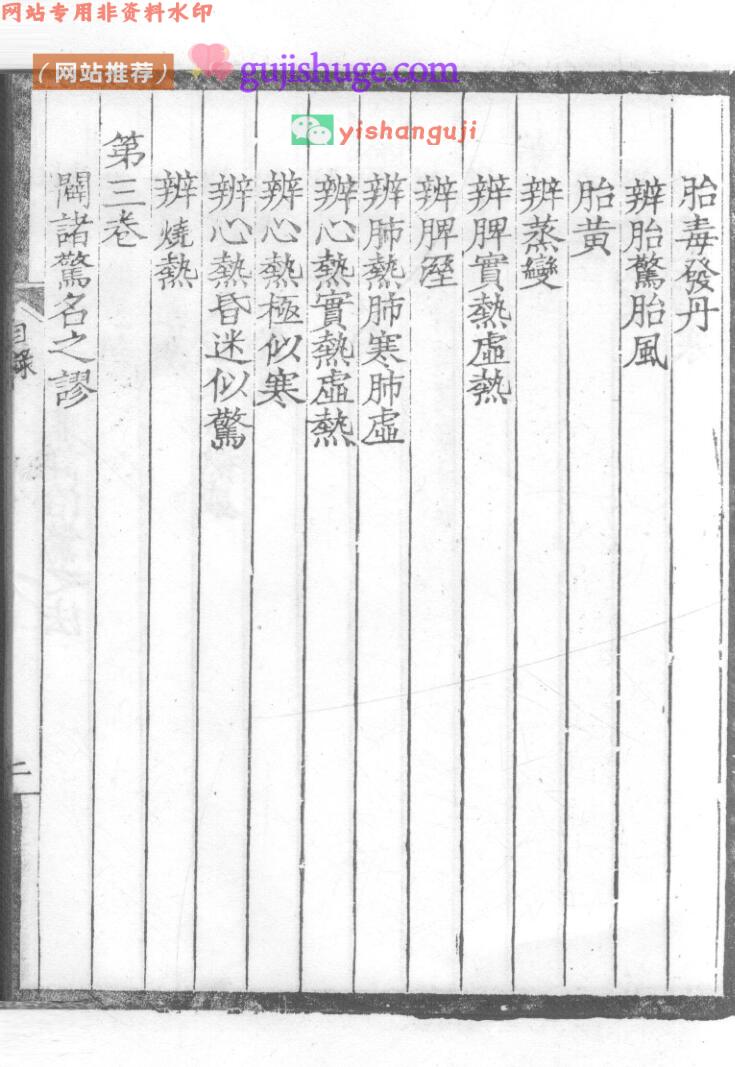 网站专用非资料水印
（网站推荐）
gujishuge.com
yishanguji
胎毒發丹
辨胎驚胎風
胎黃
辨蒸變
辨脾實熱虛熱
辨脾溼
辨肺熱肺寒肺虛
辨心熱實熱虛熱
辨心熱極似寒
辨心熱昏迷似驚
辨燒熱
第三卷
闢諸驚名之謬
目錄
二